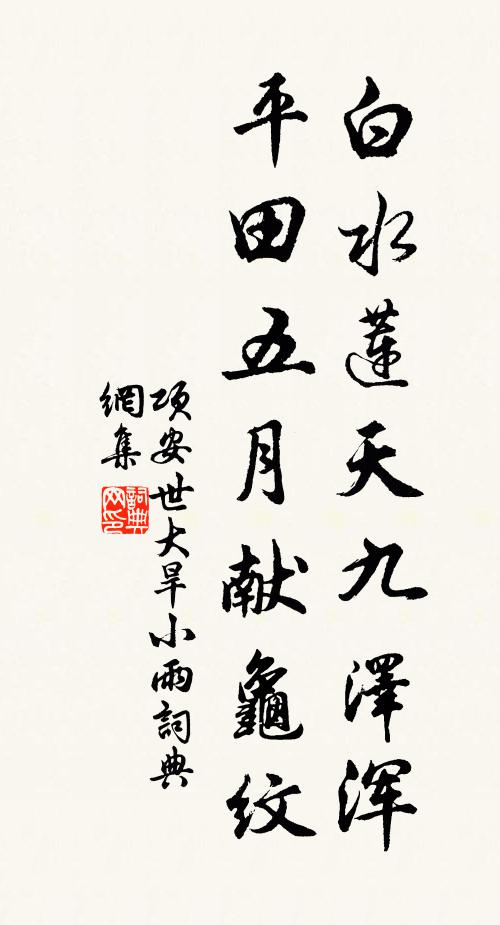 白水蓮天九澤浑
平田五月献龜紋
項安世大旱小雨詞典
網集
詞典
网印